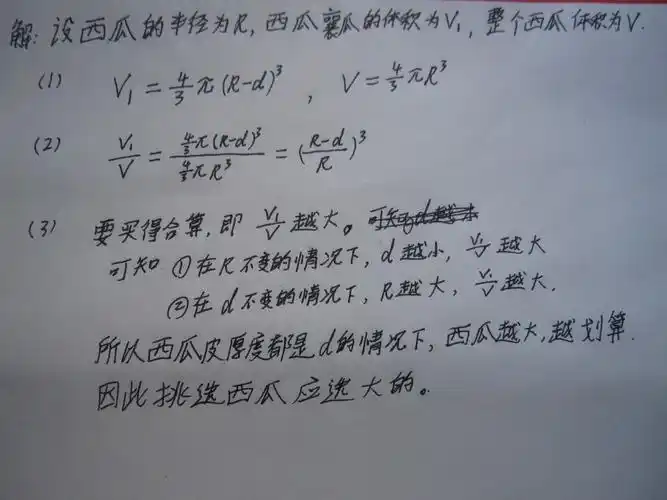 解: 设西瓜的半径为R, 西瓜瓤瓜的体积为V₁, 整个西瓜体积为V.
(1) V₁ = 4/3 π (R-d)³ , V = 4/3 πR³
(2) V₁/V = (4/3 π (R-d)³)/(4/3 π R³) = ((R-d)/R)³
(3) 要买得合算, 即 V₁/V 越大。
可知 ①在R不变的情况下, d越小, V₁/V 越大
②在d不变的情况下, R越大, V₁/V 越大.
所以西瓜皮厚度都是d的情况下, 西瓜越大,越划算.
因此挑选西瓜应选大的。